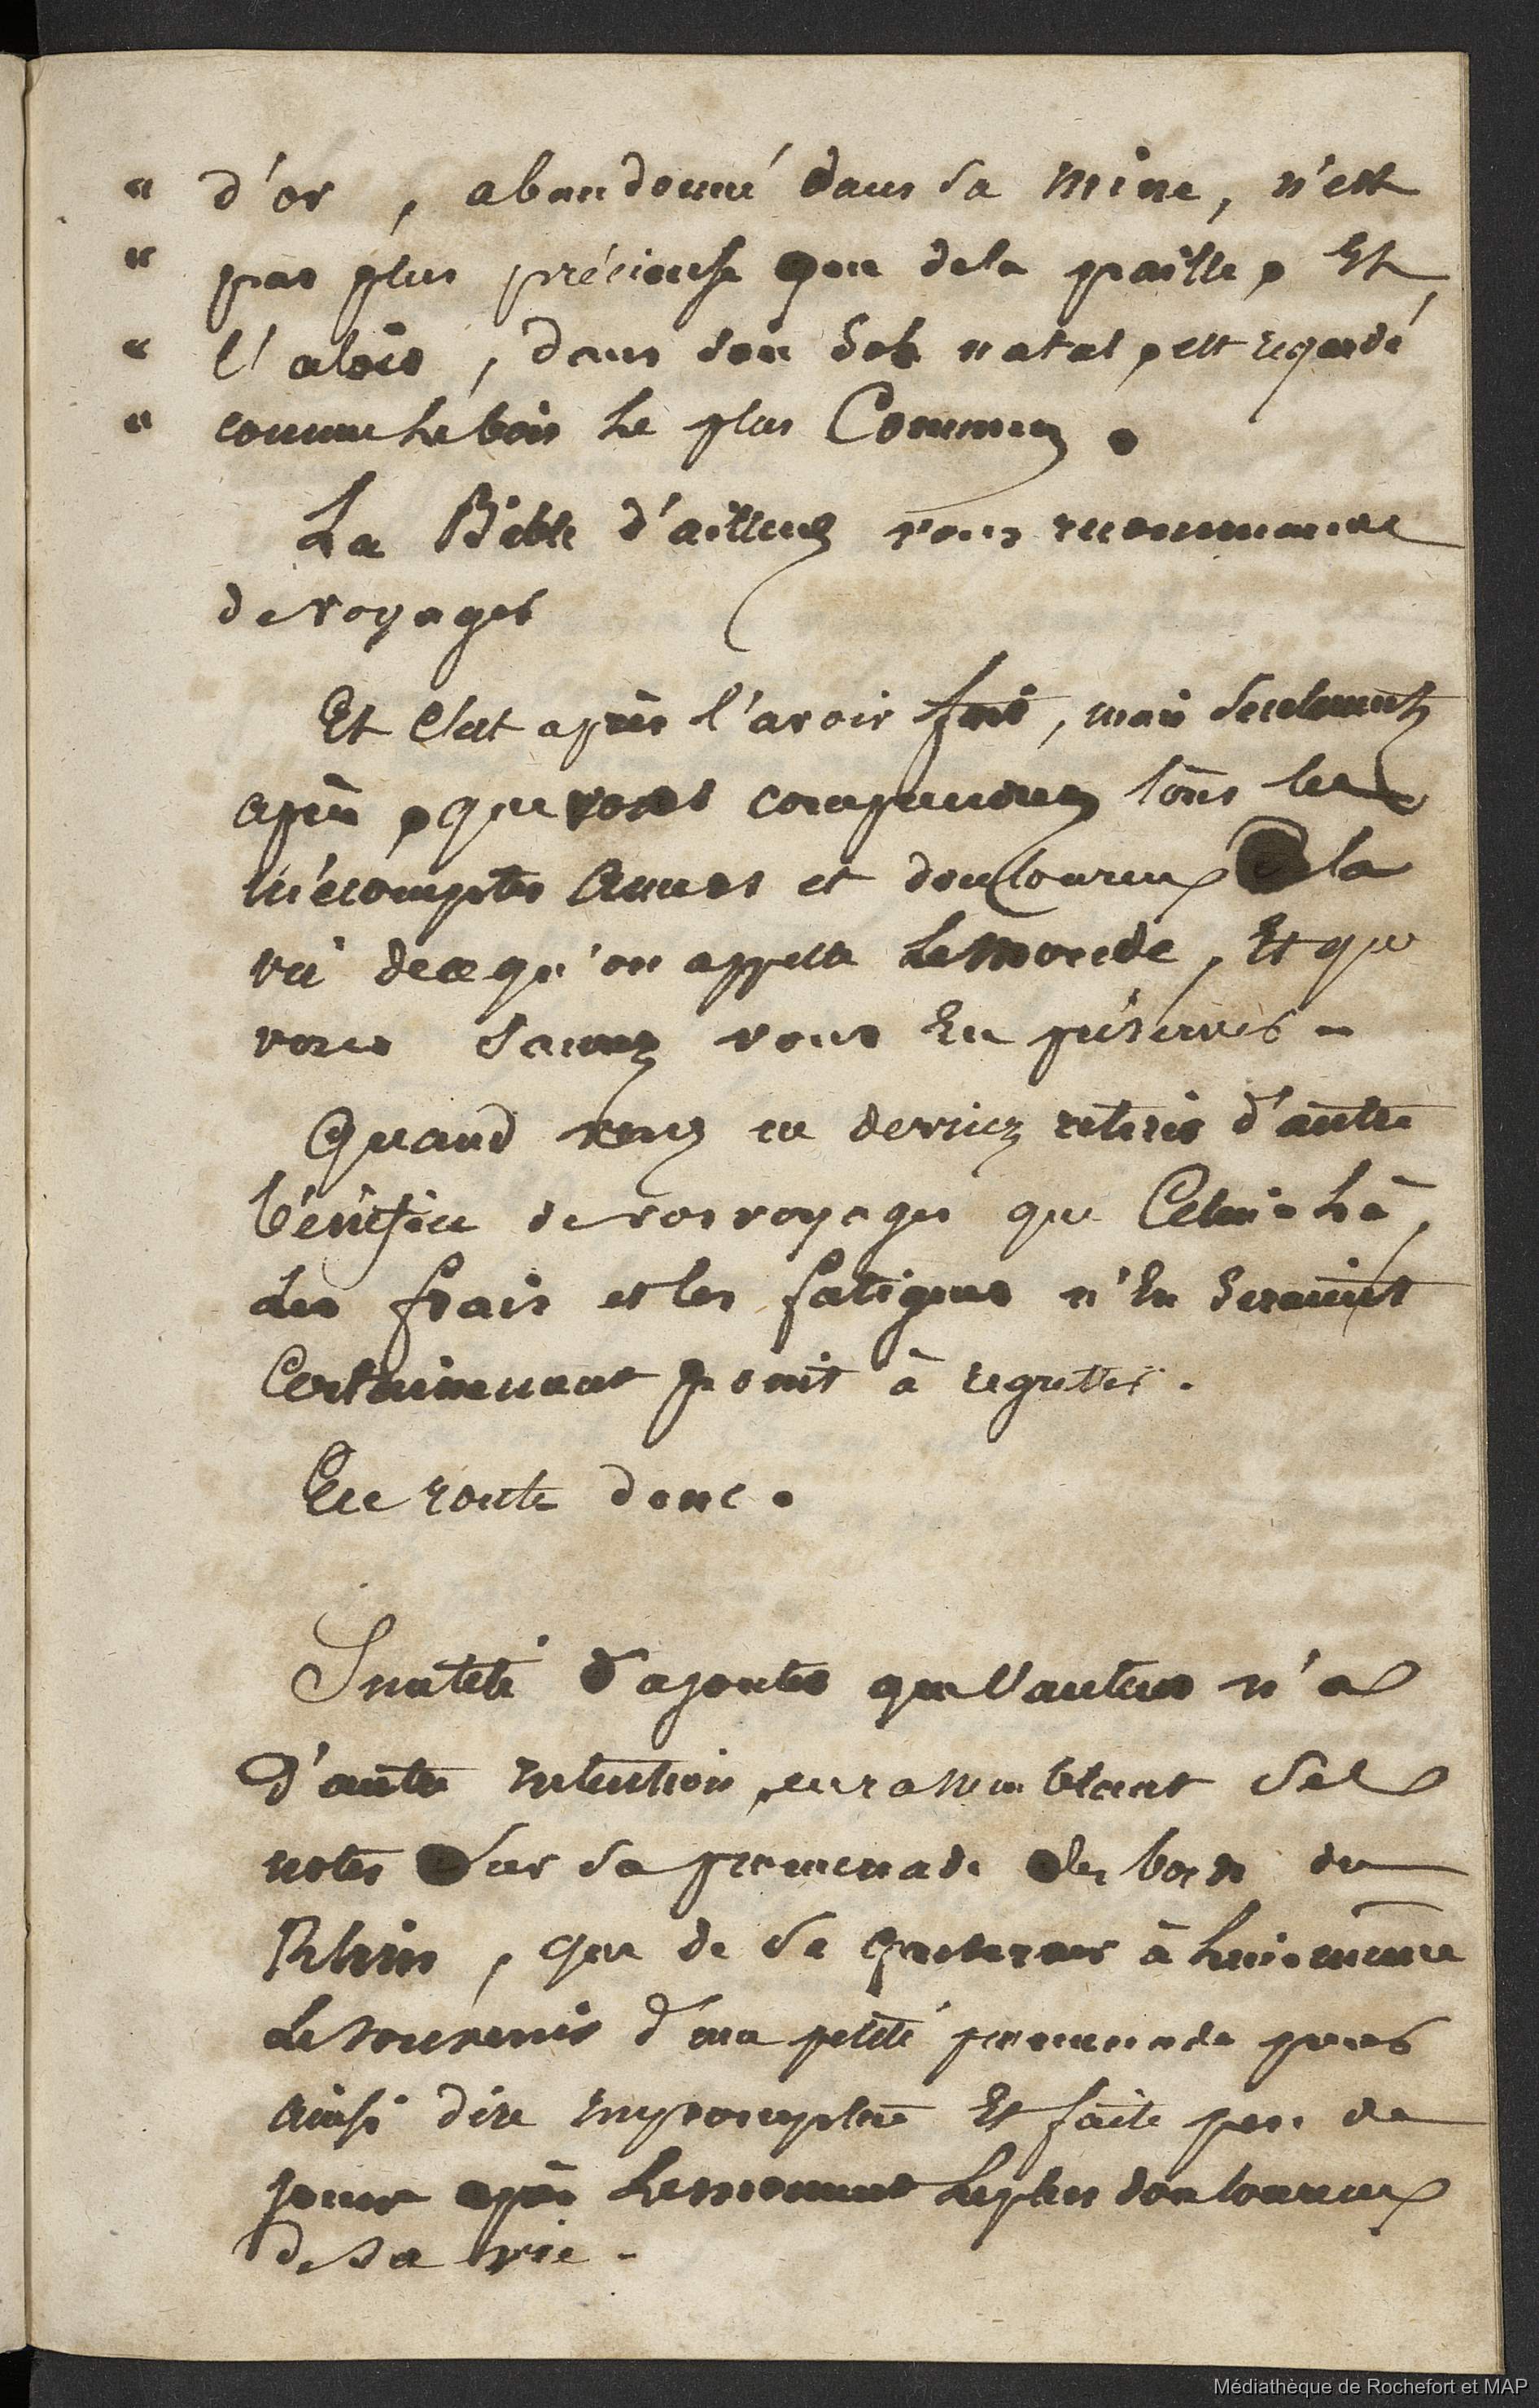 " d'or, abandonné dans sa mine, n'est
" pas plus précieuse que de la paille, Et
" l'aloès, dans son sol natal, est regardé
" comme le bois le plus Commun.
La Bible d'ailleurs vous recommande
de voyager
Et c'est après l'avoir fait, mais seulement
après, que vous comprendrez tous les
mécomptes amers et douloureux de la
vie de ce qu'on appelle le monde, Et que
vous saurez vous En préserver -
Quand vous ne devriez retirer d'autre
bénéfice de vos voyages que Celui-là,
les frais et les fatigues n'En seraient
Certainement point à regretter.
En route donc.
Inutile d'ajouter que l'auteur n'a
d'autre intention, en rassemblant ses
notes sur sa promenade des bords du
Rhin, que de se conserver à lui-même
le souvenir d'une petite promenade pour
ainsi dire impromptue Et faite peu de
jours après le moment le plus douloureux
de sa vie -
Médiathèque de Rochefort et MAP